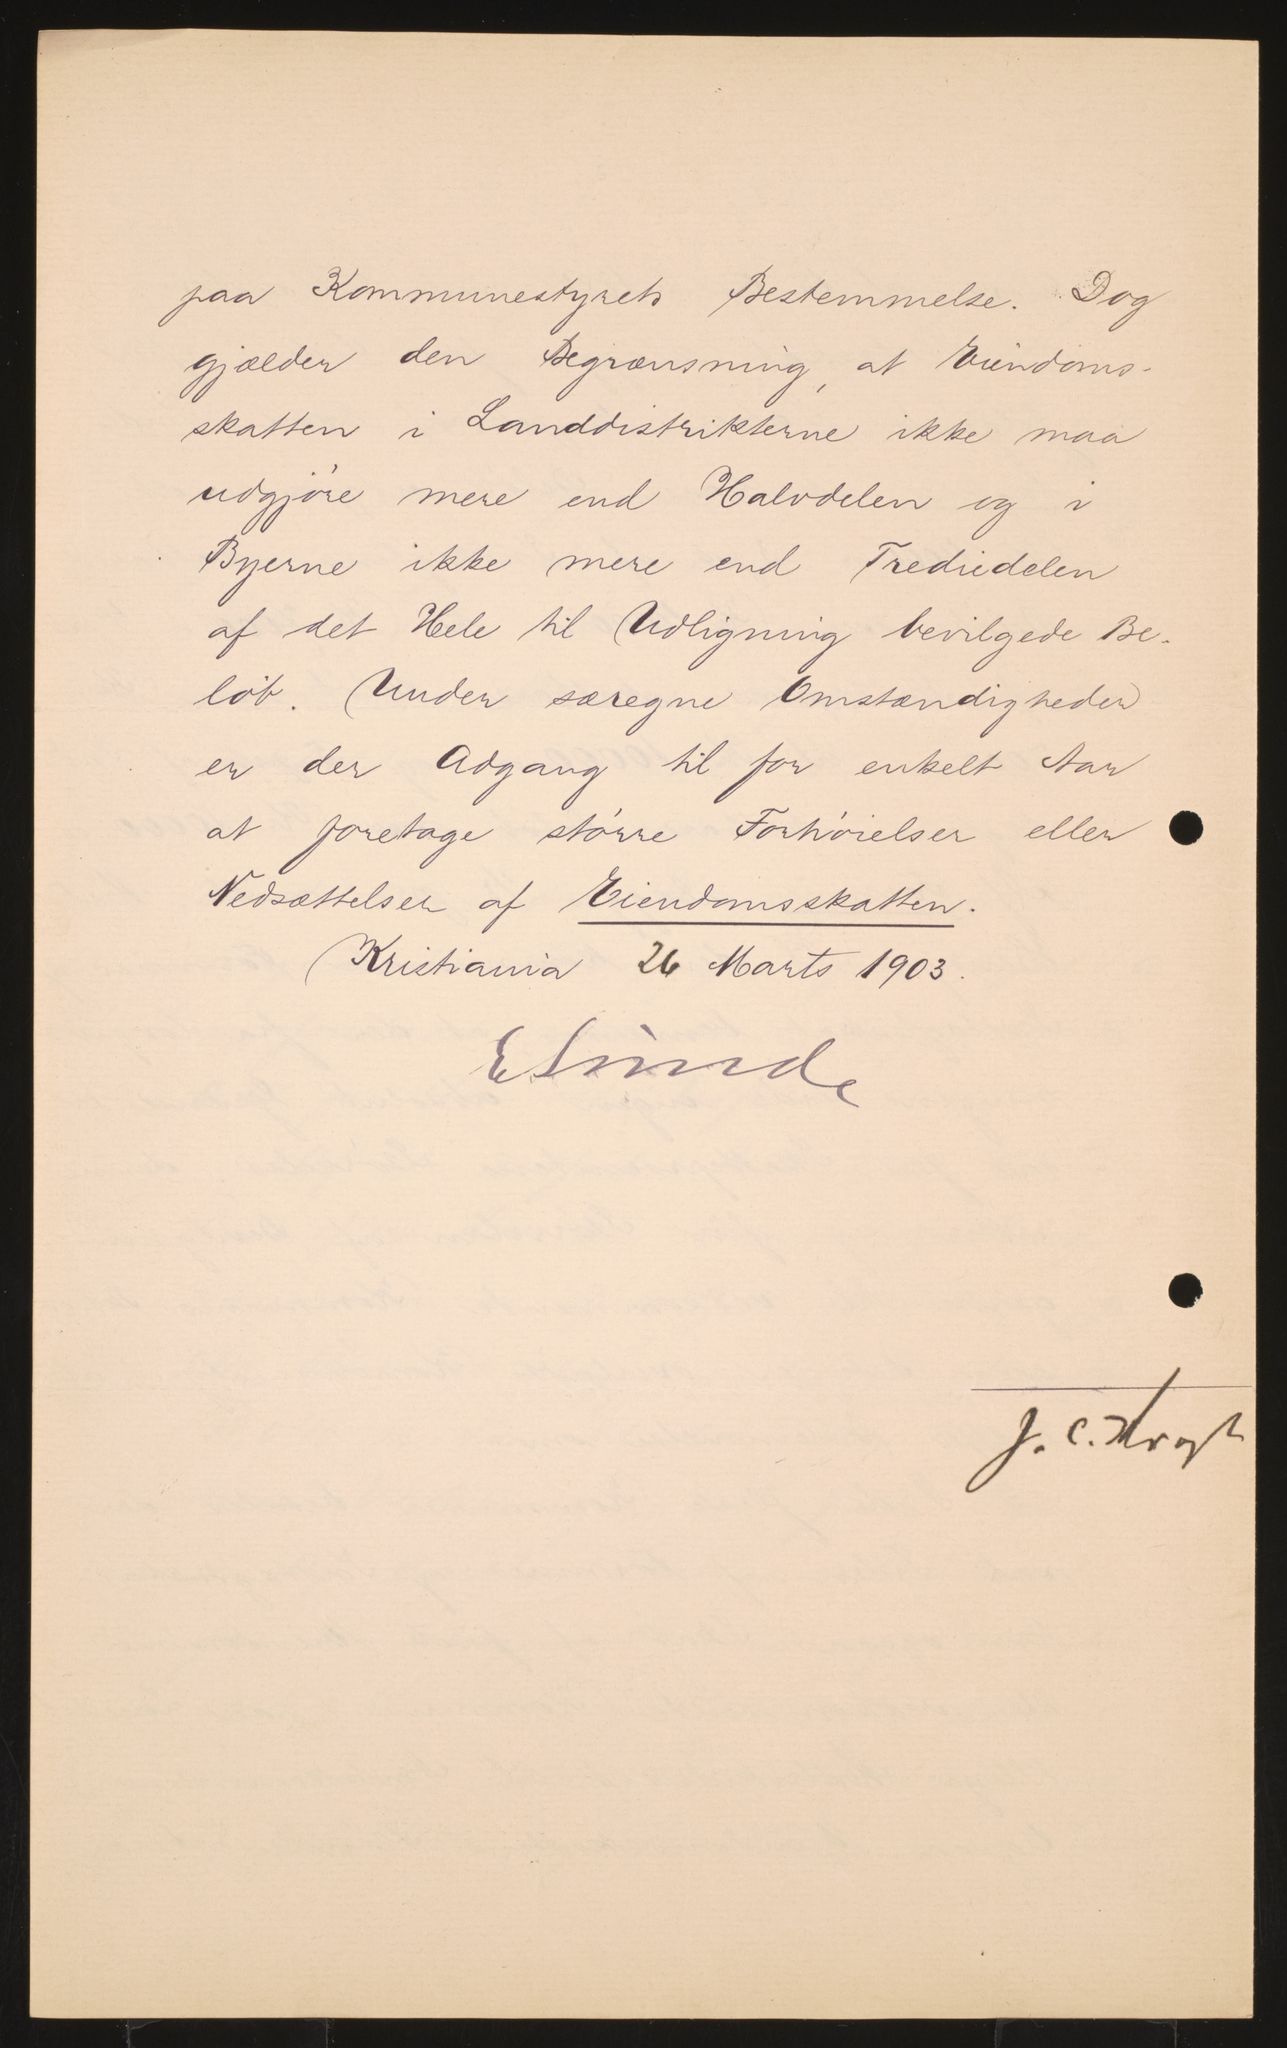 paa Kommunestyrets Bestemmelse. Dog
gjælder den Begrænsning, at Eiendoms-
skatten i Landdistrikterne ikke maa
udgjöre mere end Halvdelen og i
Byerne ikke mere end Trediedelen
af det Hele til Udligning bevilgede Be-
löb. Under særegne Omstændigheder
er der Adgang til for enkelt Aar
at foretage större Forhöielser eller
Nedsættelser af Eiendomsskatten.
Kristiania 26 Marts 1903.
E Sunde
J. C. Krogh